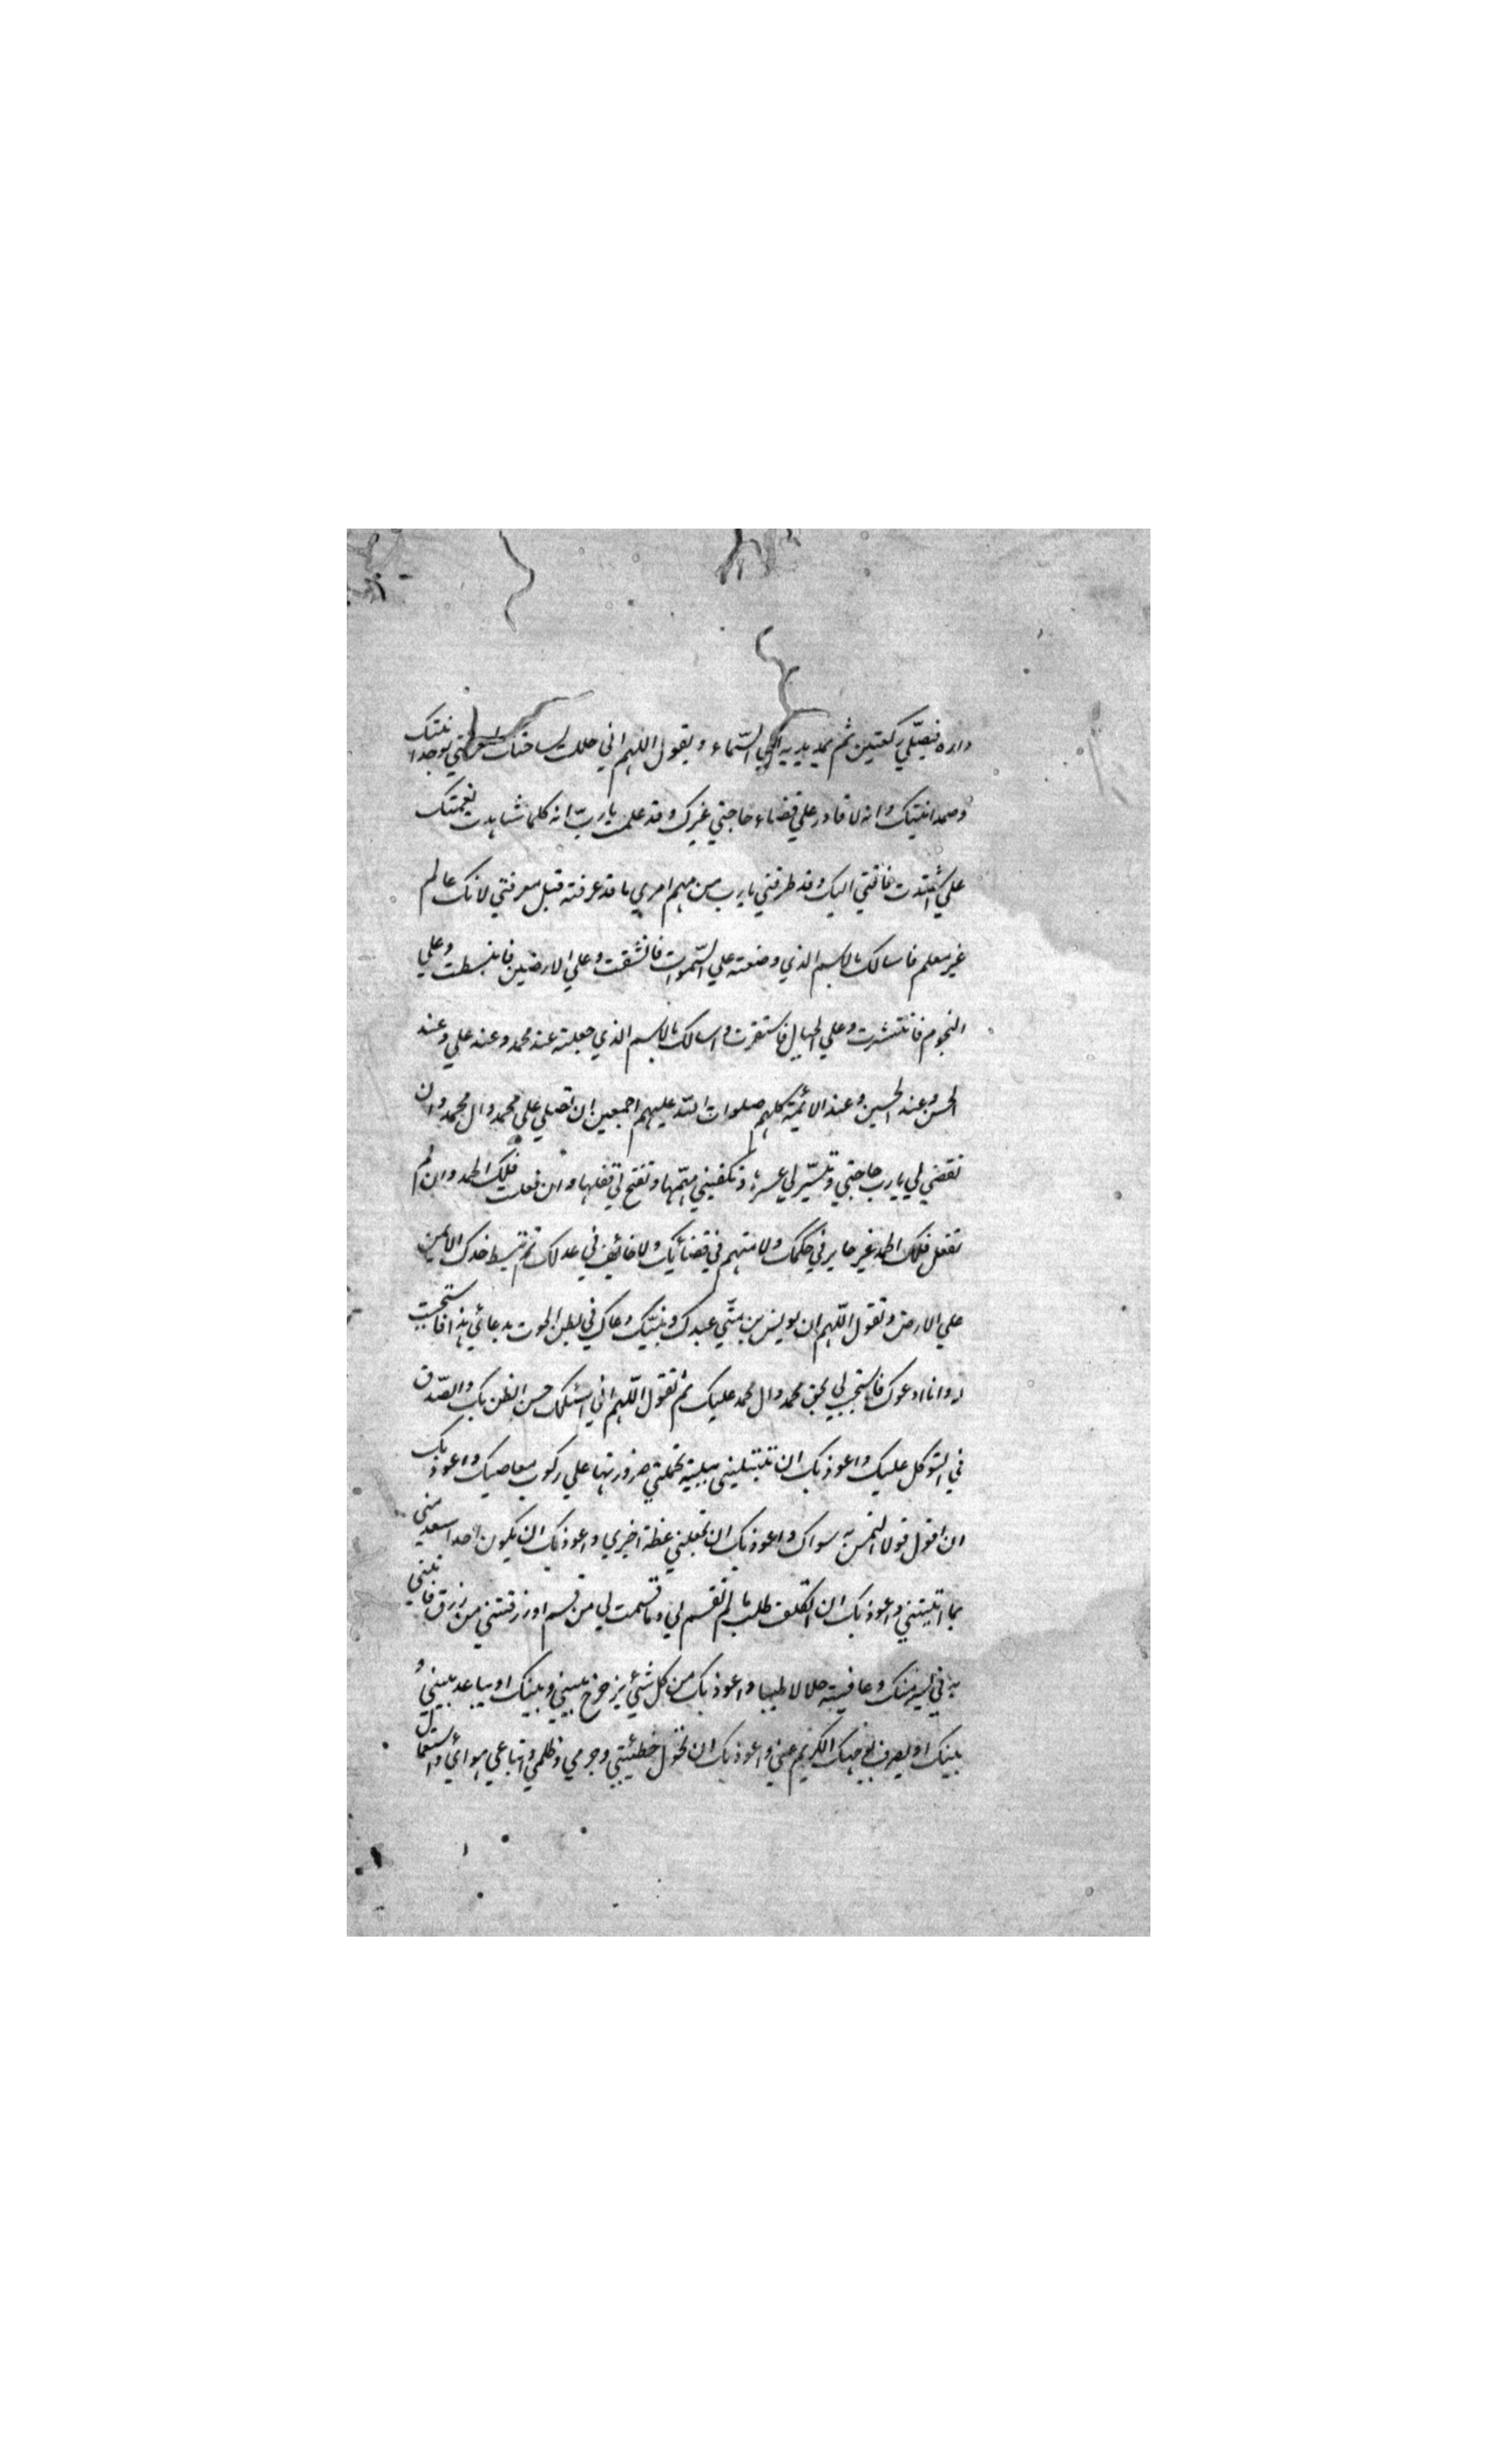 داره فيصلّي ركعتين ثم يمد يديه الي السّماء و يقول اللهم اني حللت بساحتك لمعرفتي بوحدانيتك
وصمدانيتك وانه لا قادر علي قضاء حاجتي غيرك وقد علمت يا ربّ انه كلما شاهدت نعمتك
علي اشتدت فاقتي اليك وقد طرقني يا رب من مهم امري ما قد عرفته قبل معرفتي لانك عالم
غير معلم فاسالك بالاسم الذي وضعته علي السّموات فانشقت وعلي الارضين فانبسطت وعلي
النجوم فانتشرت وعلي الجبال فاستقرت واسالك بالاسم الذي جعلته عند محمد وعند علي وعند
الحسن وعند الحسين وعند الائمّة كلهم صلوات اللّه عليهم اجمعين ان تصلي علي محمد وال محمد وان
تقضي لي يا رب حاجتي وتيسّر لي عسرها وتكفيني مهمّها وتفتح لي قفلها وان فعلت فلك الحمد وان لم
تفعل فلك الحمد غير جاير في حكمك ولا متهم في قضائك ولا خائف في عدلك ثم تبسط خدك الايمن
علي الارض وتقول اللّهم ان يونس بن متّي عبدك ونبيّك دعاك في بطن الحوت بدعائي هذا فاستجبت
له وانا ادعوك فاستجب لي بحق محمد وال محمد عليك ثم تقول اللّهم اني اسئلك حسن الظن بك والصّدق
في التوكل عليك واعوذ بك ان تبتليني ببلية تحملني ضرورتها علي ركوب معاصيك واعوذ بك
ان اقول قولا التمس به سواك واعوذ بك ان تجعلني عظة لغيري واعوذ بك ان يكون احد اسعد مني
بما اتيتني واعوذ بك ان اتكلف طلب ما لم تقسم لي وما قسمت لي من قسم او رزقتني من رزق فاتيني
به في يسر منك وعافية حلالا طيبا واعوذ بك من كل شئ يزحزح بيني وبينك او يباعد بيني و
بينك او يصرف بوجهك الكريم عني واعوذ بك ان تحول خطيئتي وجرمي وظلمي واتباعي هوائي واستعمال